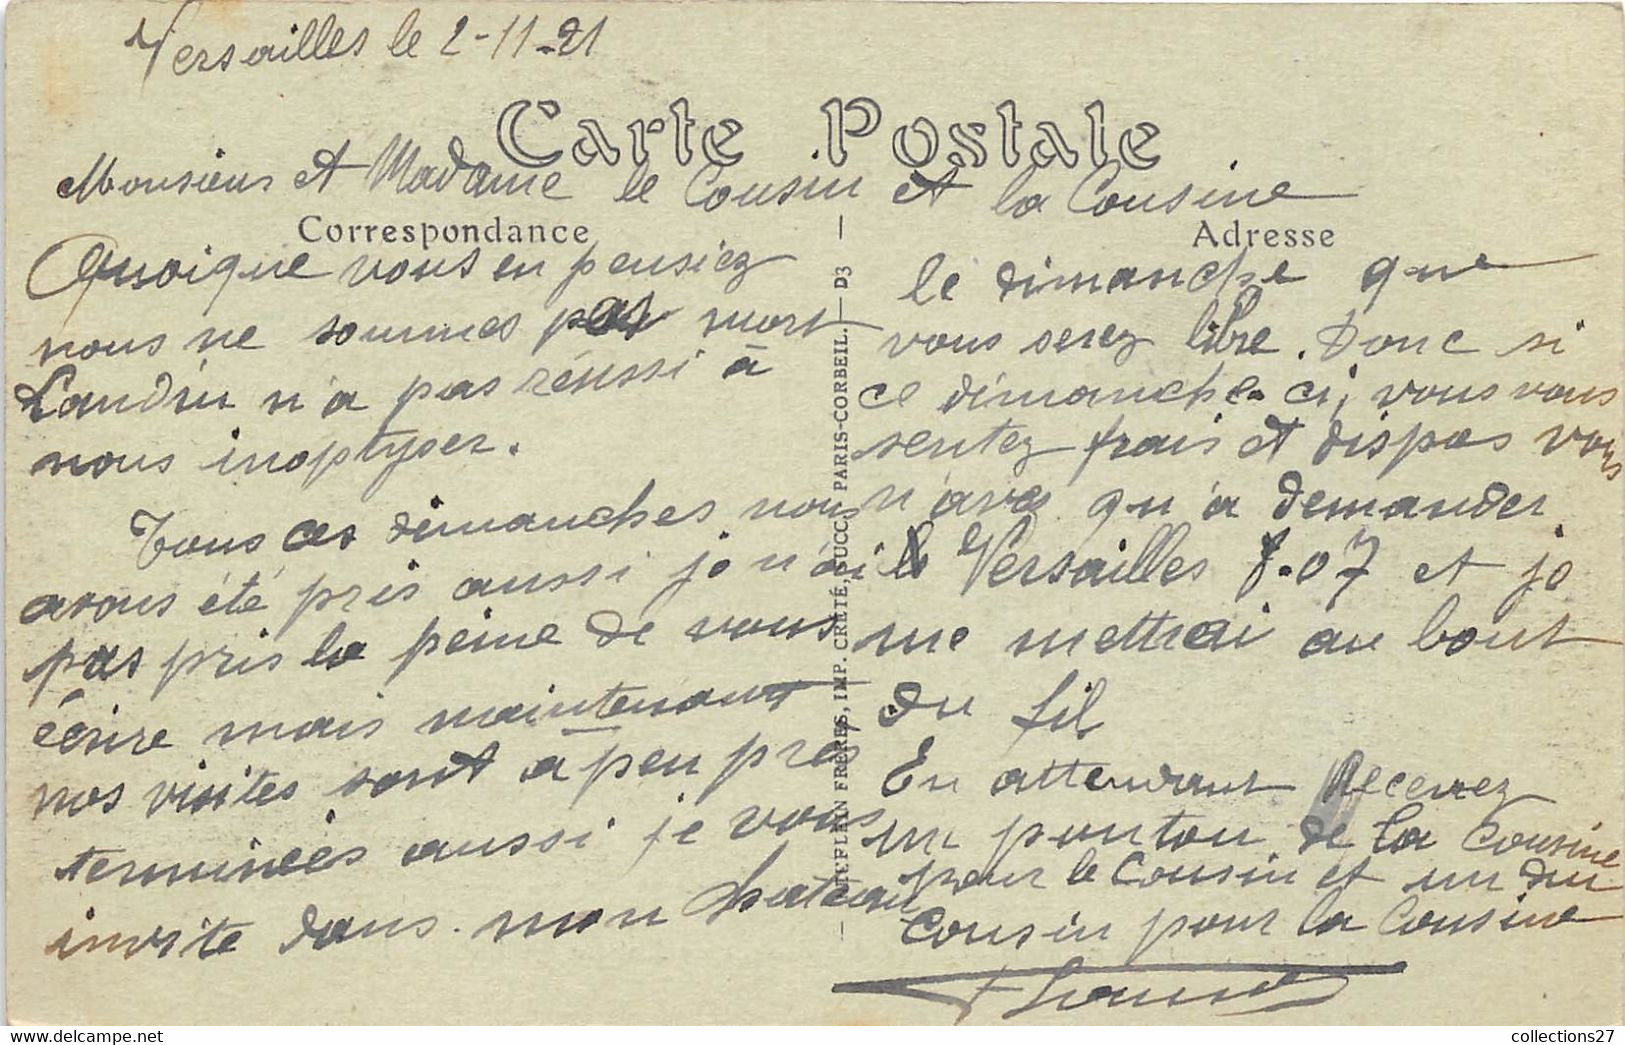 Versailles le 2-11-21
Carte Postale
Monsieur et Madame le Cousin et la Cousine
Correspondance
Quoique vous en pensiez
nous ne sommes pas mort
Landru n'a pas réussi à
nous inoptyser.
Tous ces dimanches nous
avons été pris aussi je n'ai
pas pris la peine de vous
écrire mais maintenant
nos visites sont à peu près
terminées aussi je vous
invite dans mon chateau
D3
PARIS-CORBEIL.
IMP. CRÉTÉ, SUCC
FRÈRES,
Adresse
le dimanche que
vous serez libre. Donc si
ce dimanche-ci, vous vous
sentez frais et dispos vous
n'avez qu'à demander
le Versailles 8-07 et je
me mettrai au bout
du fil
En attendant Recevez
un ponton de la Cousine
pour le Cousin et un du
Cousin pour la Cousine
collections27